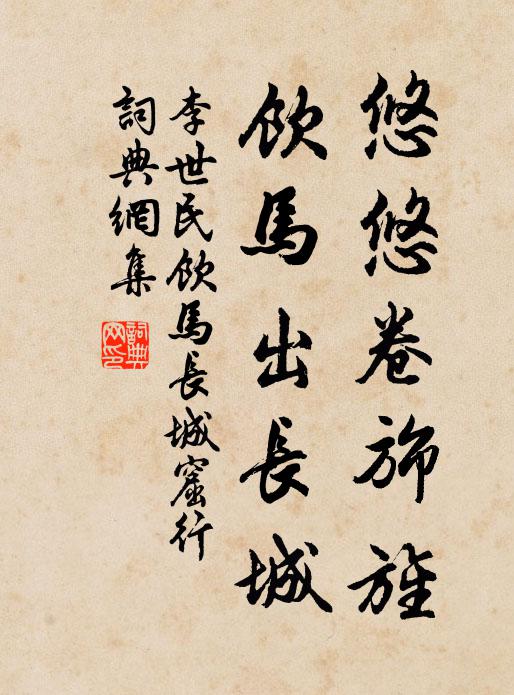 悠悠卷斾旌
飲馬出長城
李世民飲馬長城窟行
詞典網集
詞典网印